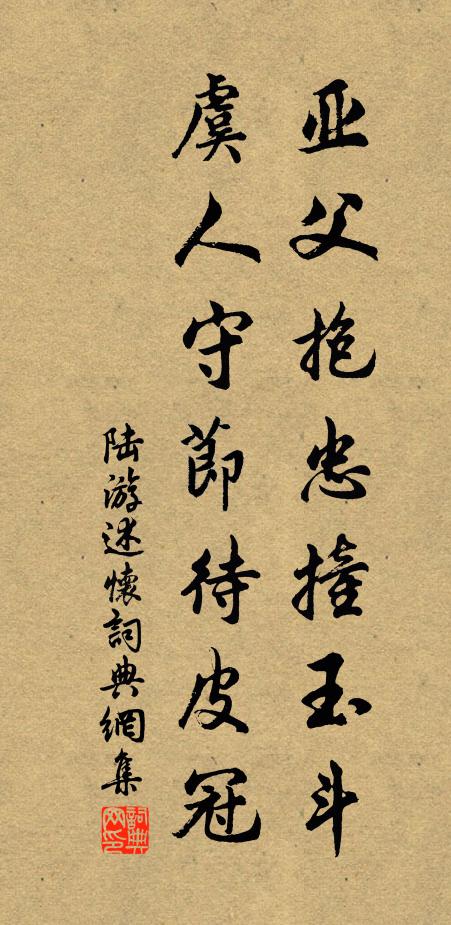 亚父抱忠撞玉斗
虞人守节待皮冠
陆游述懷詞典網集
詞典网印